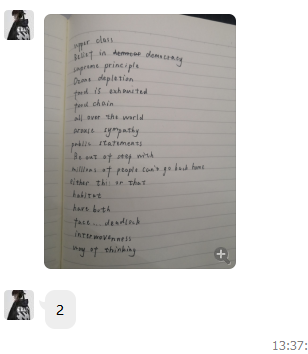 upper class
Belief in democracy
supreme principle
Ozone depletion
food is exhausted
food chain
all over the world
arouse sympathy
public statements
Be out of step with
millions of people can't go back home
either this or that
habitat
hurt both
face... deadlock
interwovenness
way of thinking
2
13:37: